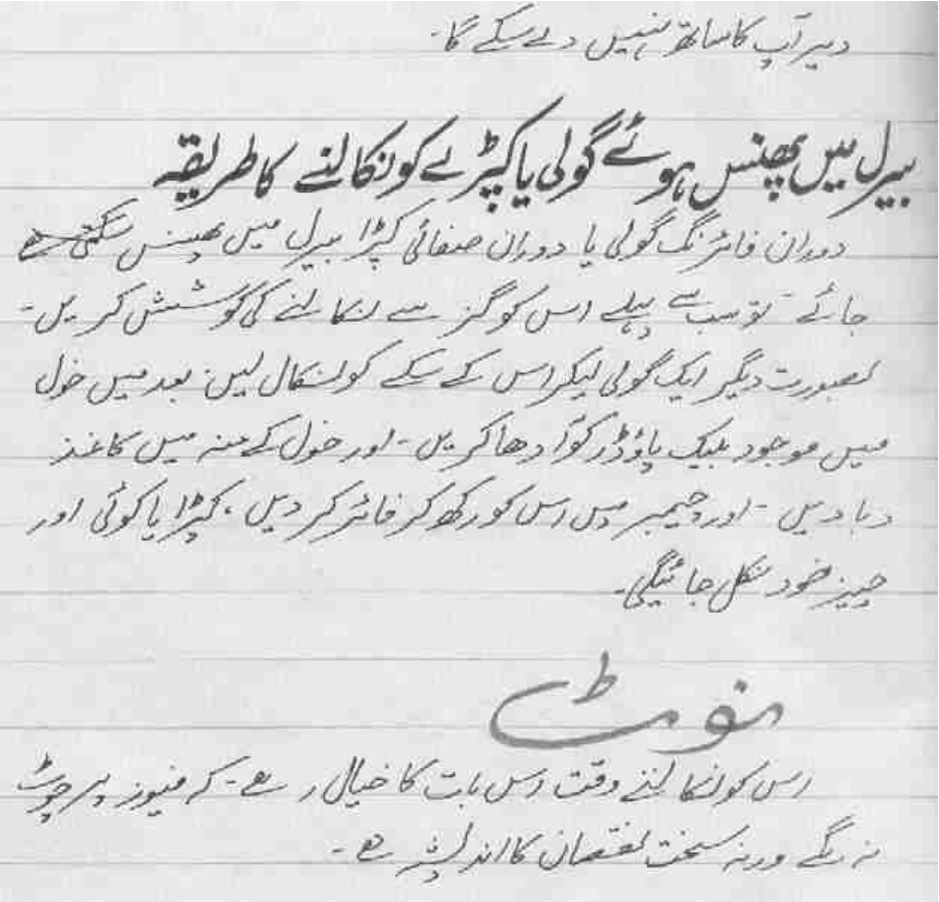 دیر آپ کا ساتھ نہیں دے سکے گا۔
بیرل میں پھنس ہوئے گولی یا کپڑے کو نکالنے کا طریقہ
دوران فائرنگ گولی یا دوران صفائی کپڑا بیرل میں پھنس سکتی ہے
جائے۔ تو سب سے پہلے اس کو گز سے نکالنے کی کوشش کریں۔
بصورت دیگر ایک گولی لیکر اس کے سکے کو نکال لیں۔ بعد میں خول
میں موجود بلیک پاؤڈر کو آدھا کریں۔ اور خول کے منہ میں کاغذ
دبا دیں۔ اور چیمبر میں اس کو رکھ کر فائر کر دیں، کپڑا یا کوئی اور
چیز خود نکل جائیگی۔
نوٹ
اس کو نکالتے وقت اس بات کا خیال رہے۔ کہ فیوز پر چوٹ
نہ لگے ورنہ سخت نقصان کا اندیشہ ہے۔